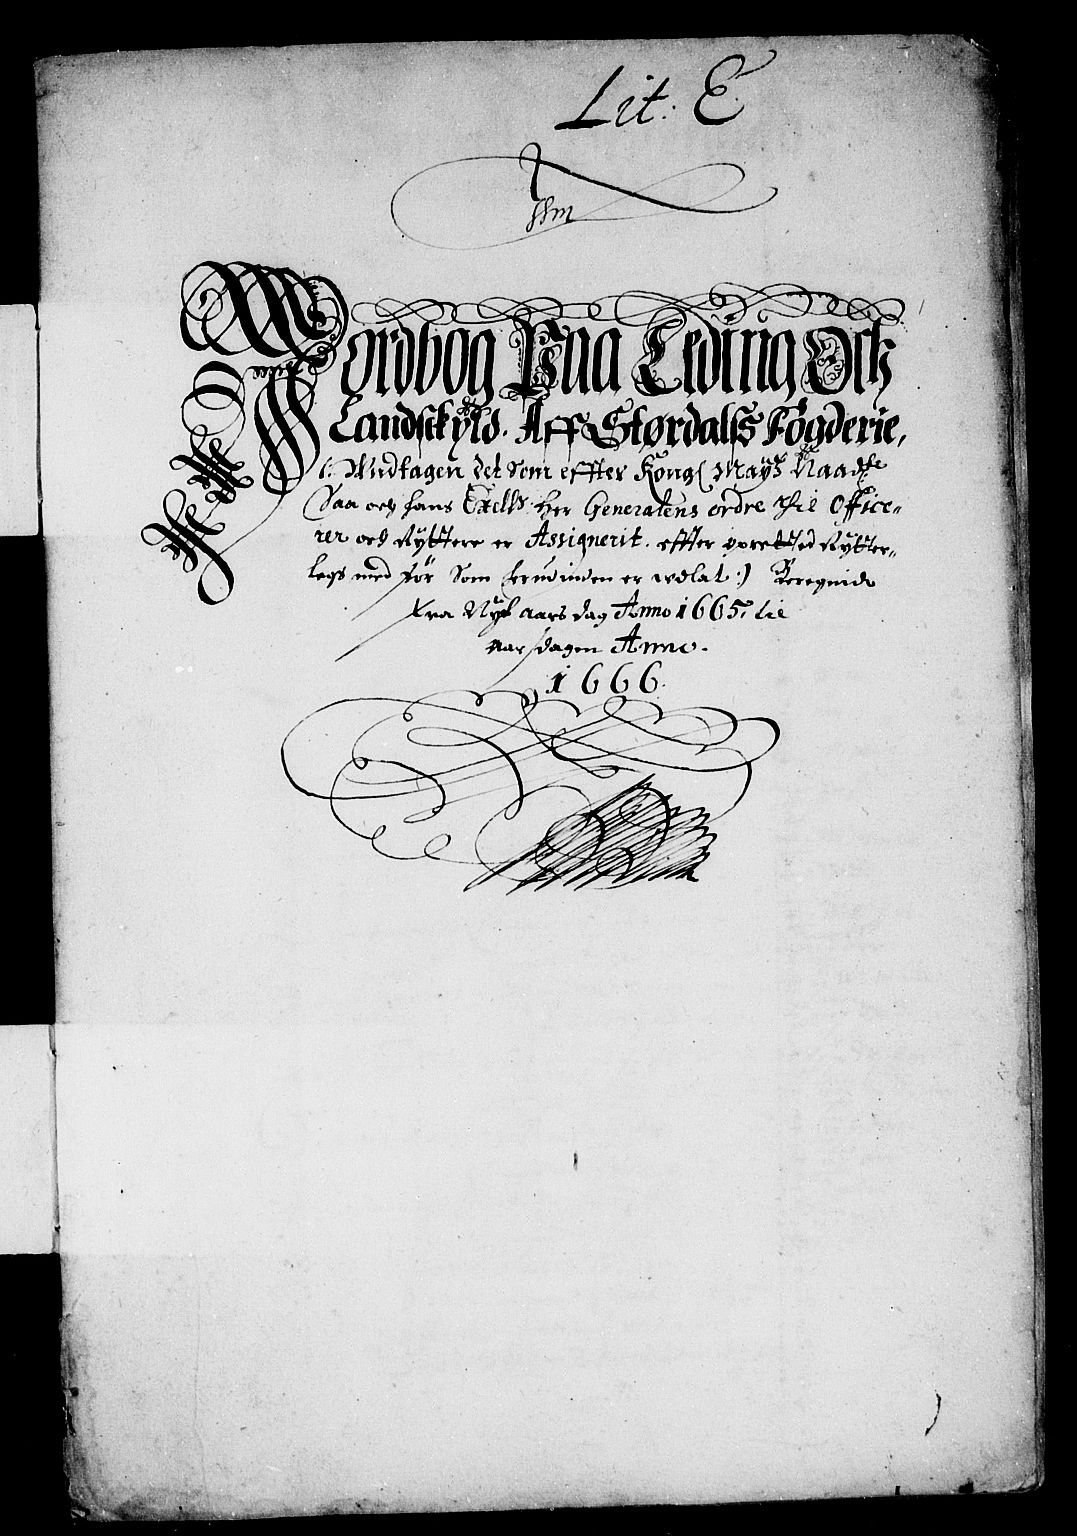 Lit: E
Jordbog Paa Leding Och
Landsckyld. Aff Størdalss Fogderie,
(: Undtagen det Som effter Kongl Mayts Naadste
Saa och hans Excells: Her Generalens ordre thil Office-
rer och Ryttere er Assignerit. effter opretted Rytter-
legs med för Som herudinden er wdlat :) Beregnide
Fra Nyt aars dag Anno 1665, til
aarsdagen Anno.
1666.